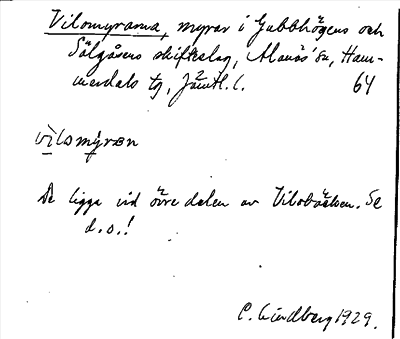 Vilomyrarna, myrar i Gubbhögens och
Sälgåsens skifteslag, Alanäs sn, Ham-
merdals tg, Jämtl. l. 64
vìlsmýrɑn
De ligga vid övre delen av Vilobäcken. Se
d. o.!
C. Lindberg 1929.